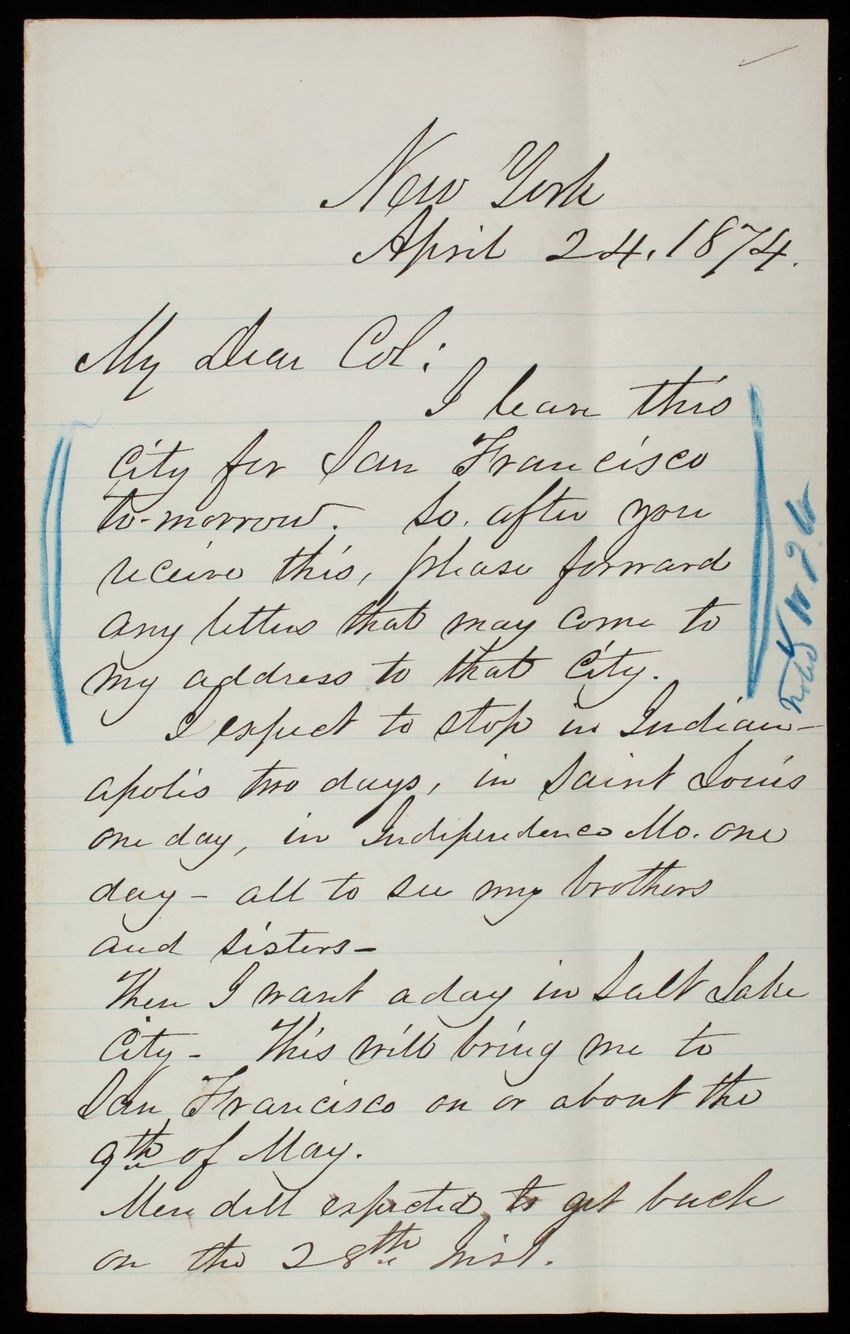 New York
April 24, 1874.
My Dear Col:
I leave this
city for San Francisco
to-morrow. So, after you
receive this, please forward
any letters that may come to
my address to that City.
I expect to stop in Indian-
apolis two days, in Saint Louis
one day, in Independence Mo. one
day - all to see my brothers
and sisters -
Then I want a day in Salt Lake
City - This will bring me to
San Francisco on or about the
9th of May.
Mendell expected to get back
on the 28th Inst.
Noted